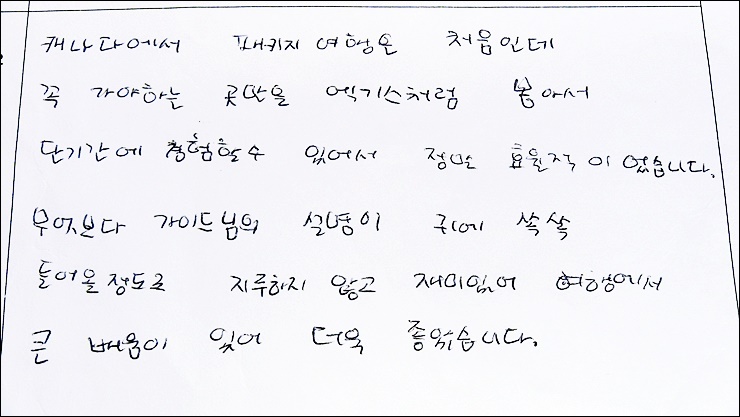 캐나다에서 패키지 여행은 처음인데
꼭 가야하는 곳만을 엑기스처럼 뽑아서
단기간에 경험할수 있어서 정말 효율적이었습니다.
무엇보다 가이드님의 설명이 귀에 쏙쏙
들어올정도로 지루하지 않고 재미있어 여행에서
큰 배움이 있어 더욱 좋았습니다.